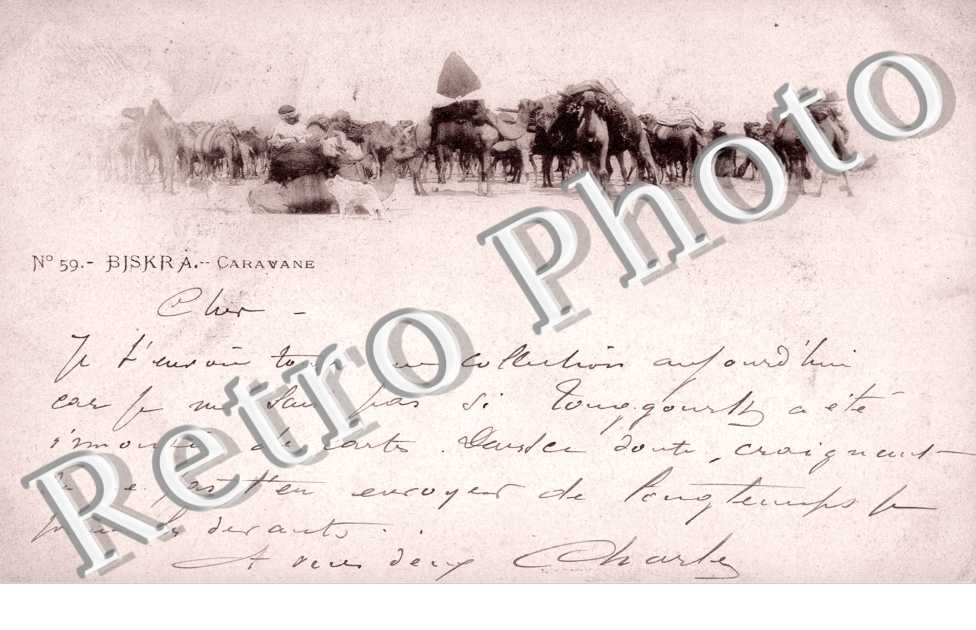 Nº 59.- BISKRA.-- CARAVANE
Cher -
Je t'envoie collection aujourd'hui
car je ne sais pas si Touggourth a été
de cartes. Dans le doute, craignant
pas t'en envoyer de longtemps je
les devants.
A vous deux Charles
Retro Photo